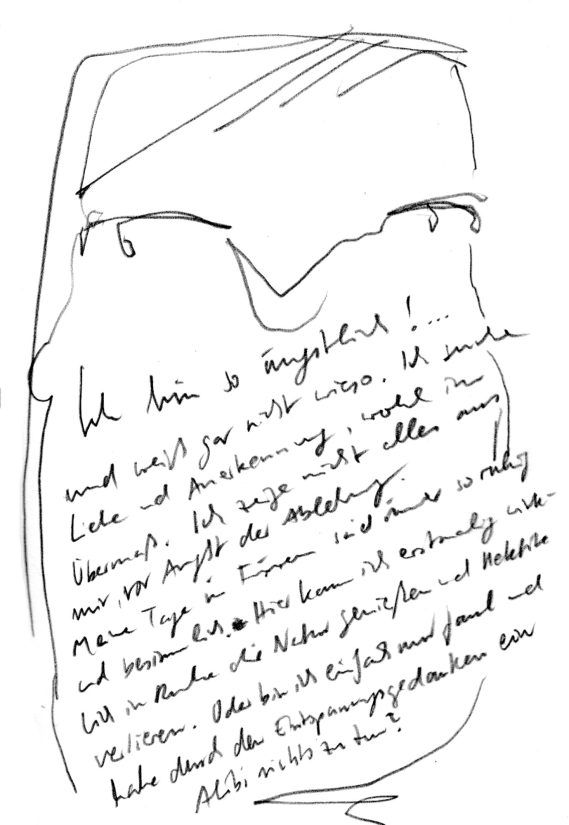 Ich bin so ängstlich!...
und weiß gar nicht wieso. Ich suche
Liebe und Anerkennung, wohl im
Übermaß. Ich zeige nicht alles aus
mir, vor Angst der Ablehnung.
Meine Tage in sind immer so ruhig
und besinnlich. Hier kann ich erstmalig wirk-
lich in Ruhe die Natur genießen und Hektik
verlieren. Oder bin ich einfach nur faul und
habe durch den Entspannungsgedanken ein
Alibi nichts zu tun?